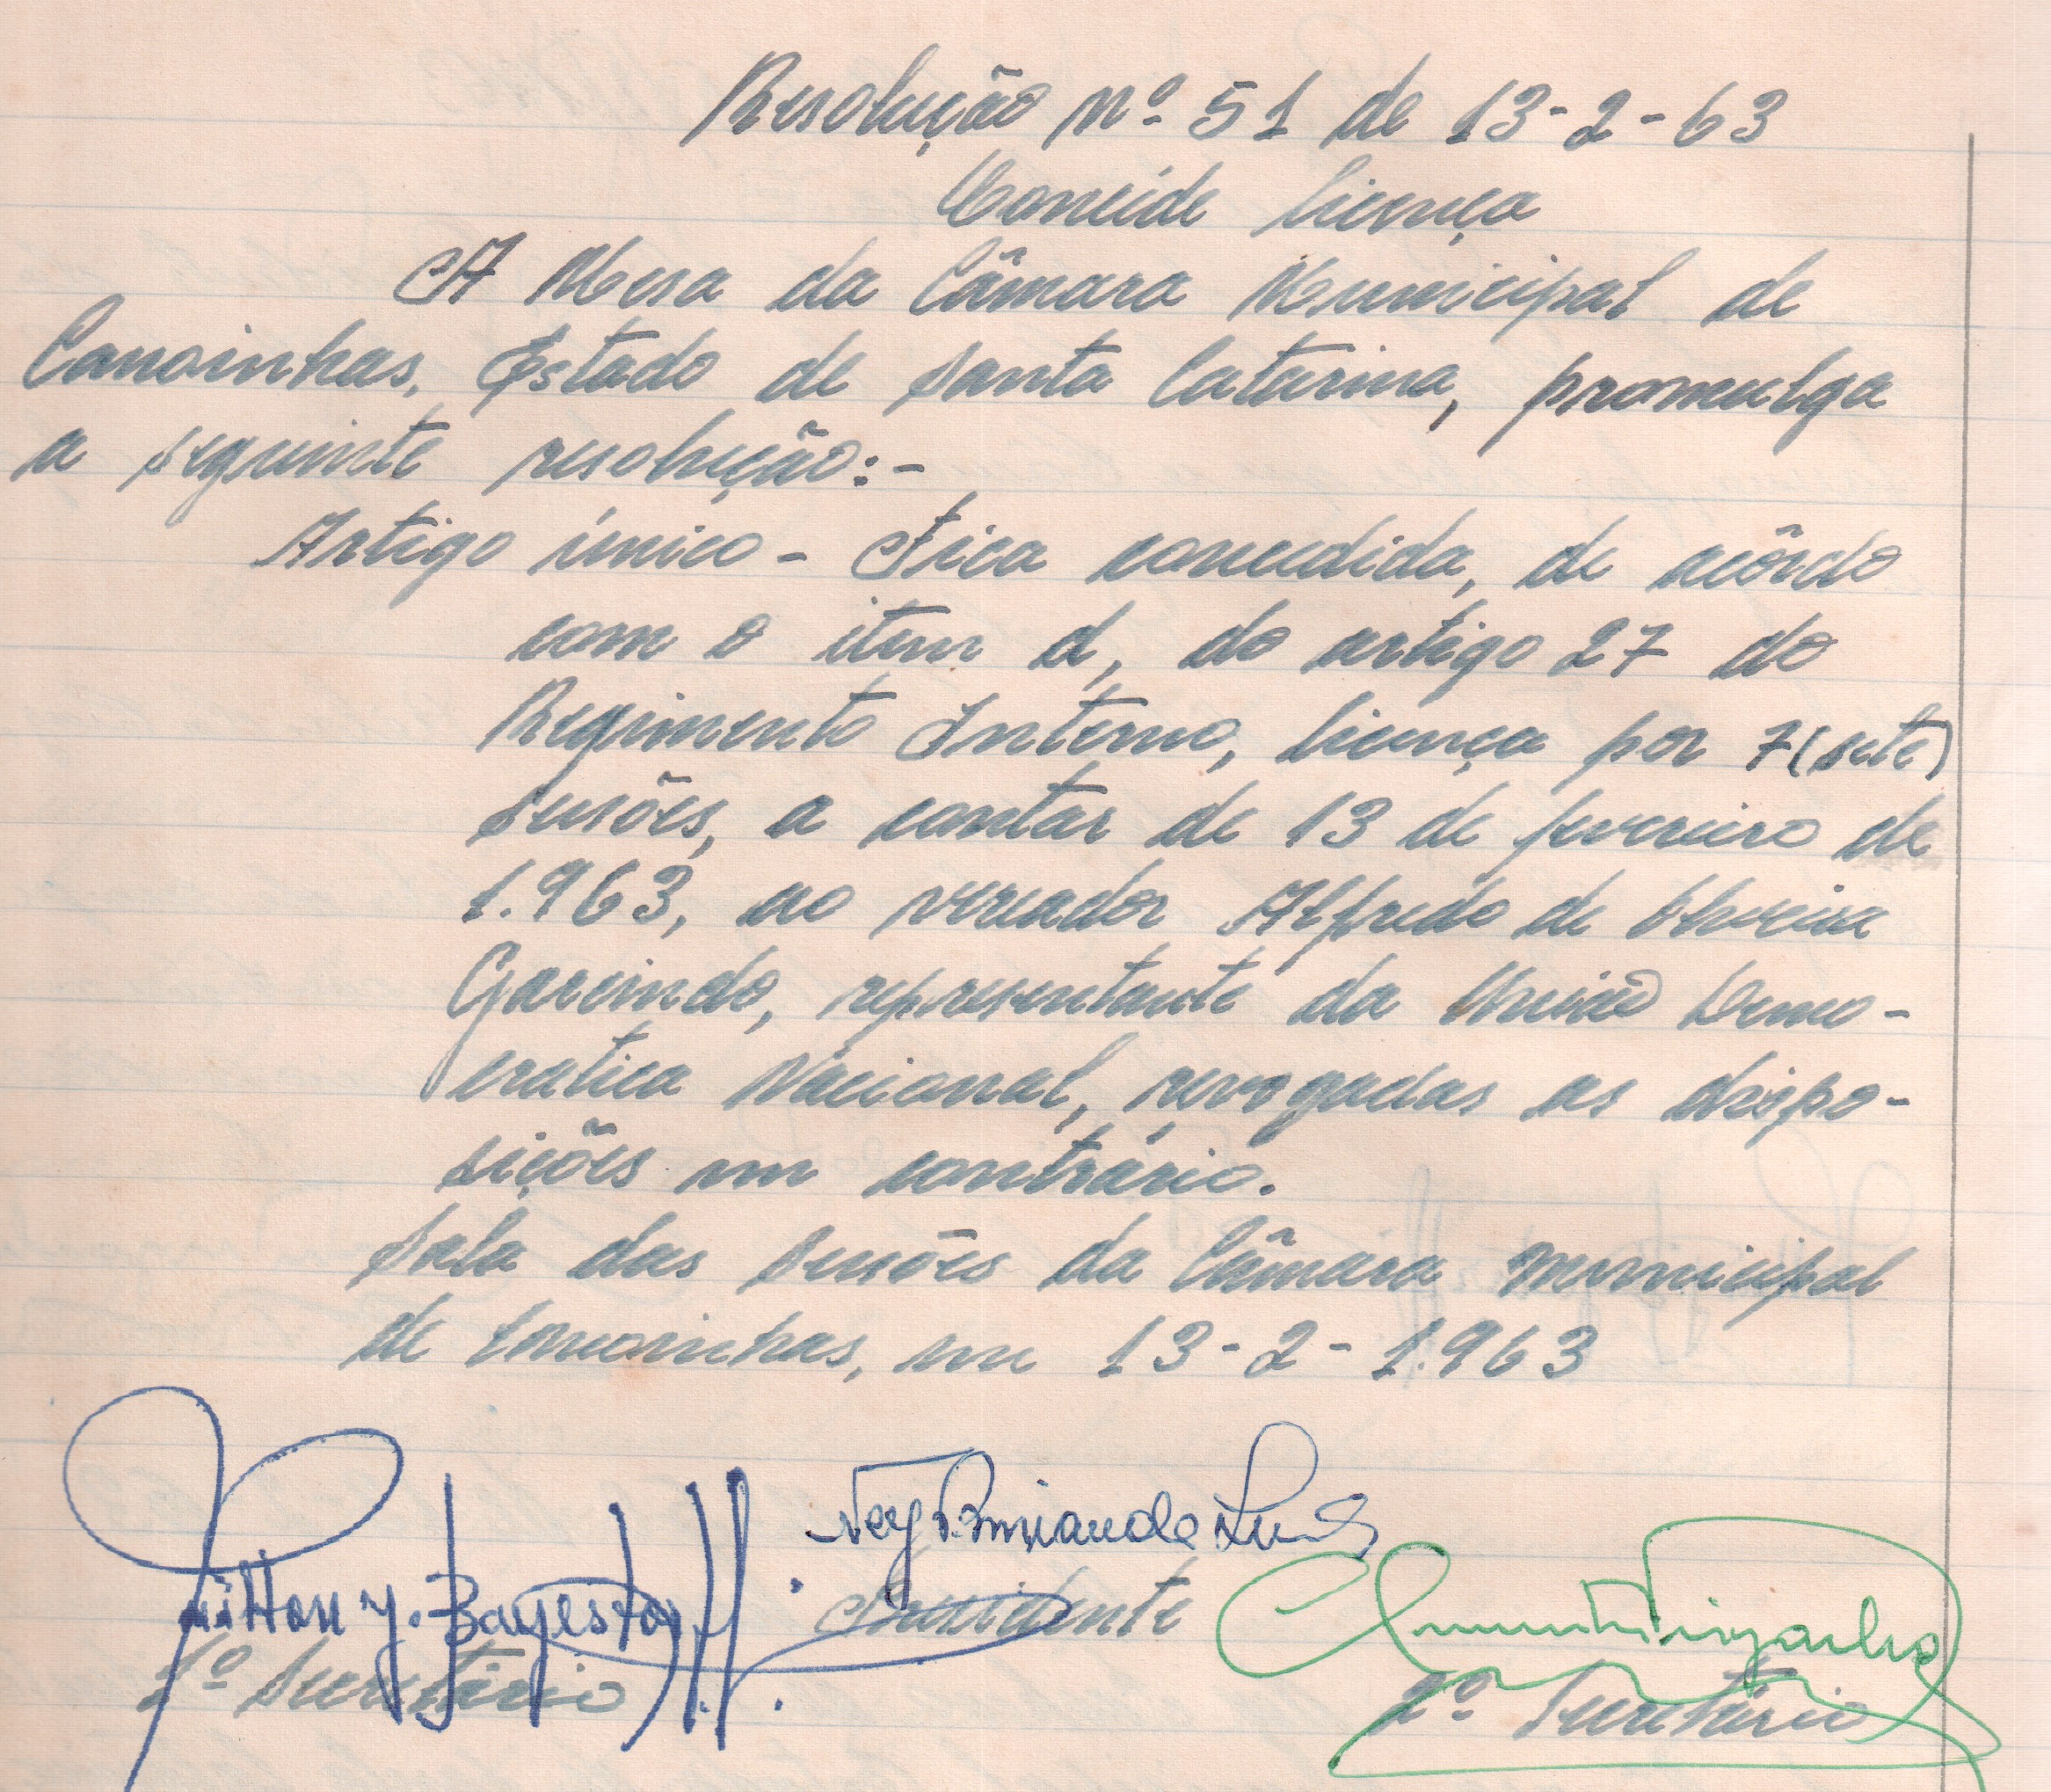 Resolução nº 51 de 13-2-63
Concéde licença
A Mesa da Câmara Municipal de
Canoinhas, Estado de Santa Catarina, promulga
a seguinte resolução:-
Artigo único - Fica concedida, de acôrdo
com o item d, do artigo 27 do
Regimento Interno, licença por 7 (sete)
sessões, a contar de 13 de fevereiro de
1.963, ao vereador Alfredo de Oliveira
Garcindo, representante da União Demo-
cratica Nacional, revogadas as dispo-
sições em contrário.
Sala das sessões da Câmara Municipal
de Canoinhas, em 13-2-1.963
Ney
Presidente
1º Secretário
2º Secretário